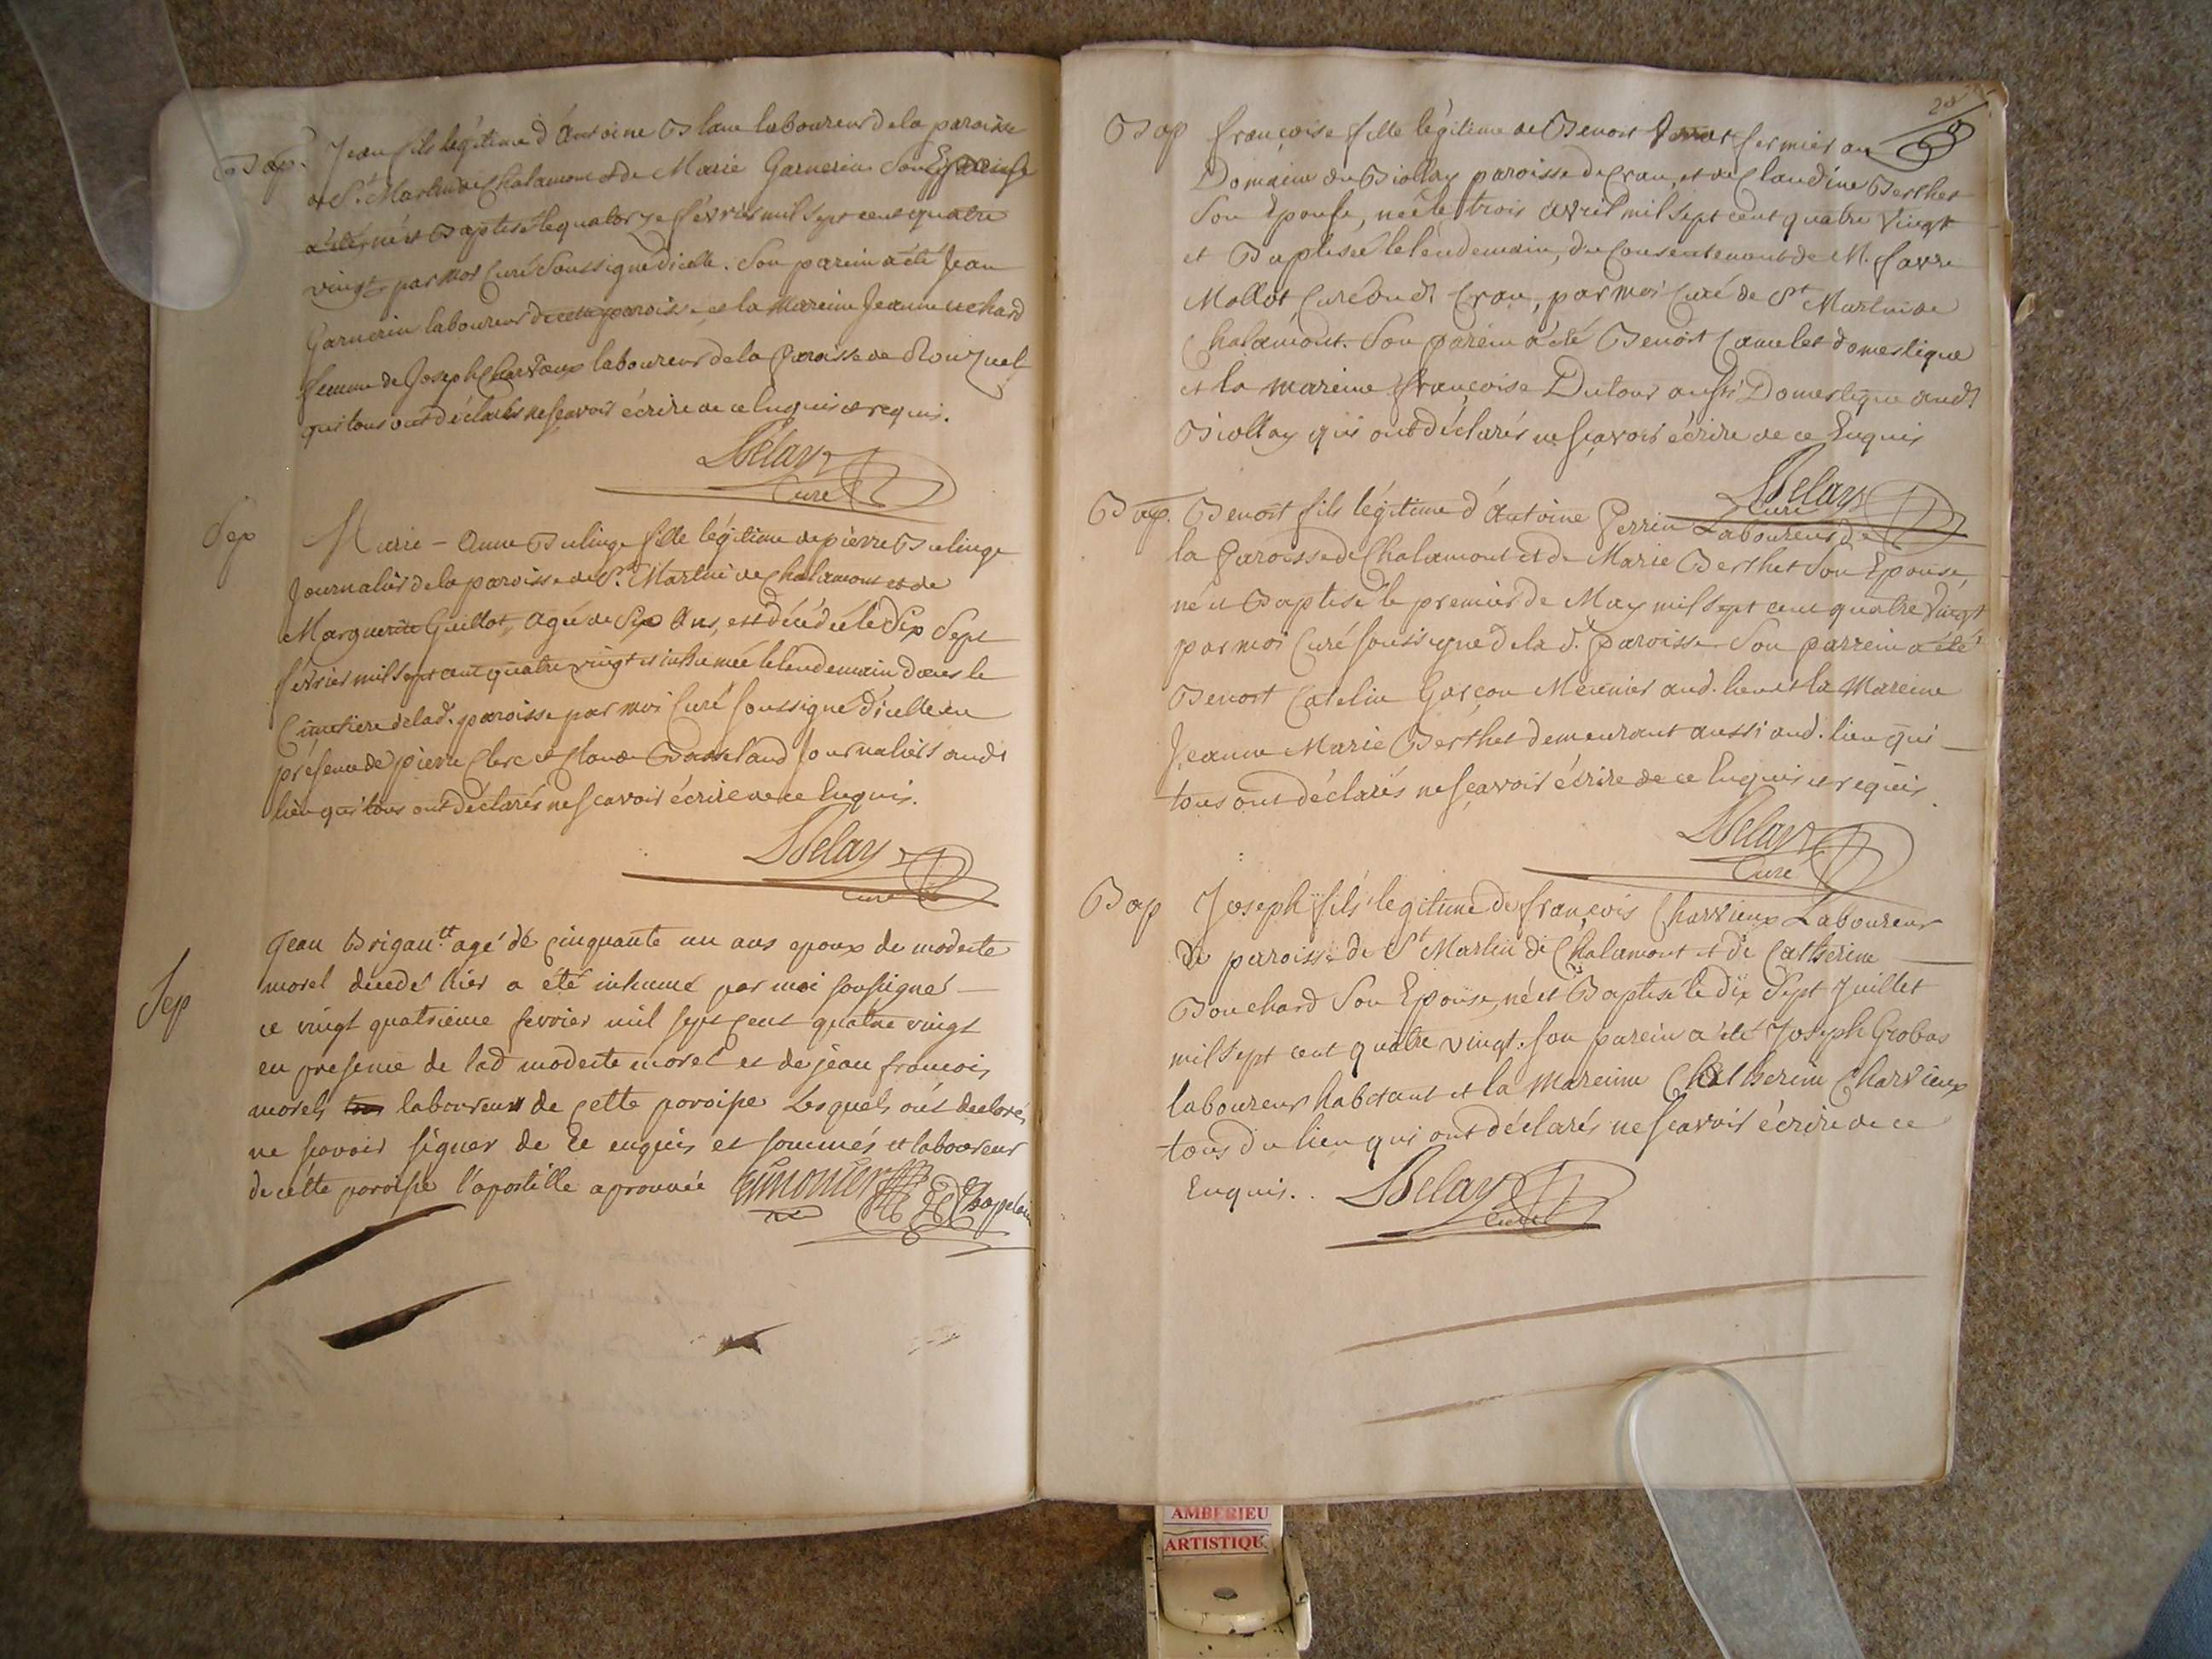 Bap. Jean fils légitime d'Antoine Blanc laboureur de la paroisse
de St. Martin de Chalamont et de Marie Garnerin Son Epouse
a été né et Baptisé le quatorze février mil sept cent quatre
vingt par moi Curé Soussigné d'icelle. Son parein a été Jean
Garnerin laboureur de cette paroisse et la Mareine Jeanne
femme de Joseph laboureur de la Paroisse de
qui tous ont déclarés ne sçavoir écrire de ce Enquis et requis.
Delay
Curé
Sep Marie-Anne Bulinge fille légitime de pierre Bulinge
Journalier de la paroisse de St. Martin de Chalamont et de
Marguerite Guillot, agée de Six Ans, est décédée le dix Sept
février mil sept cent quatre vingt et inhumée le lendemain dans le
Cimetiere de lad. paroisse par moi Curé soussigné d'icelle en
présence de pierre Clerc et Claude Journaliers audt
lieu qui tous ont déclarés ne scavoir écrire de ce Enquis.
Delay
Curé
Sep Jean agé de cinquante un ans epoux de modeste
morel decedé hier a été inhumé par moi soussigné
ce vingt quatrieme fevrier mil sept cent quatre vingt
en presence de lad modeste morel et de jean francois
morel, laboureurs de cette paroisse Lesquels ont declaré,
ne savoir signer de ce enquis et sommés et laboureur
de cette paroisse l'apostille aprouvée Simonier
Chapelain
28
Bap françoise fille légitime de Benoit fermier au
Domaine du Biollay paroisse de Cran, et de Claudine Berthet
Son Epouse, née le trois avril mil sept cent quatre Vingt
et Baptisée le lendemain, du Consentement de M. favre
Mollot, Curé dudt Cran, par moi Curé de St Martin de
Chalamont. Son parein a été Benoit Camelet domestique
et la mareine françoise Dutour aussi Domestique audt
Biollay qui ont déclarés ne sçavoir écrire de ce Enquis
Delay
Curé
Bap. Benoit fils légitime d'Antoine Perrin Laboureur de
la Paroisse de Chalamont et de Marie Berthet Son Epouse,
né et Baptisé le premier de May mil sept cent quatre Vingt
par moi Curé soussigné de la d. Paroisse Son parrein a été
Benoit Catelin Garçon Meunier aud. lieu et la Mareine
Jeanne Marie Berthet demeurant aussi aud. lieu qui
tous ont déclarés ne sçavoir écrire de ce Enquis et requis.
Delay
Curé
Bap Joseph fils legitime de françois Charvieux Laboureur
de paroisse de St Martin de Chalamont et de Catherine
Bouchard Son Epouse, né et Baptisé le dix Sept Juillet
mil sept cent quatre vingt. Son parein a été Joseph Grobas
laboureur habitant et la Mareine Catherine Charvieux
tous du lieu qui ont déclarés ne scavoir écrire de ce
Enquis.. Delay
Curé
AMBERIEU
ARTISTIQU